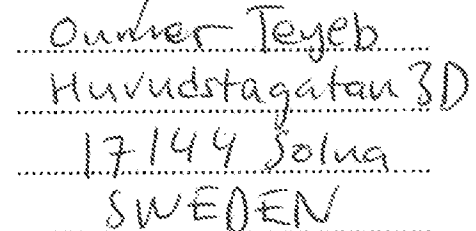 Oumer Teyeb
Huvudstagatan 3D
17144 Solna
SWEDEN